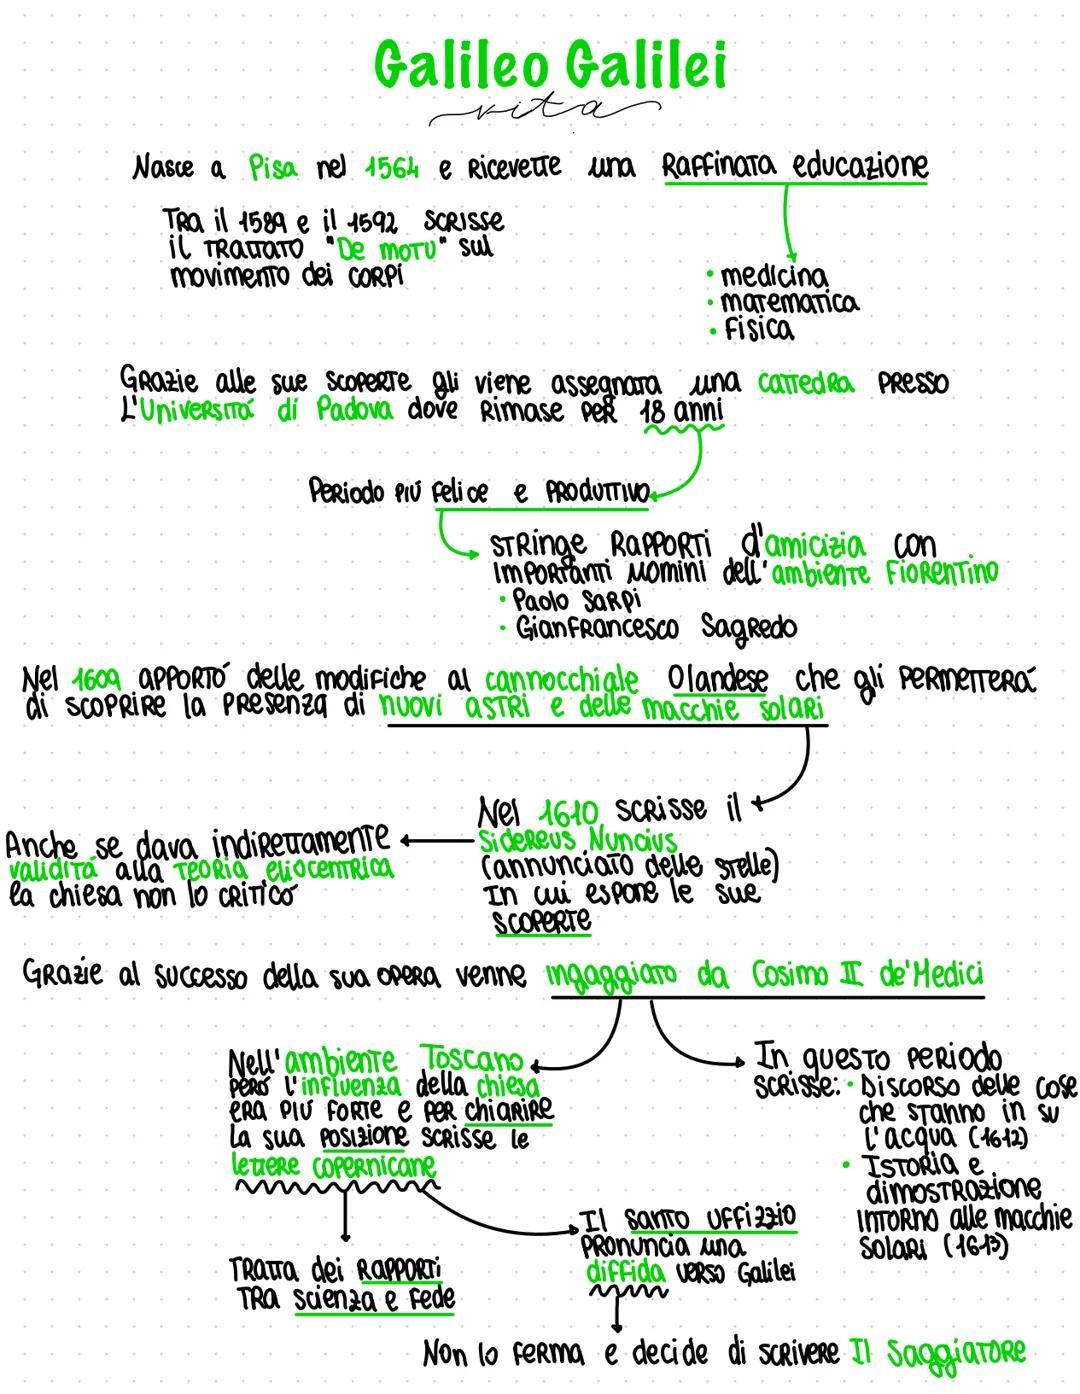 Galileo Galilei
vita
Nasce a Pisa nel 1564 e ricevette una raffinata educazione
Tra il 1589 e il 1592 scrisse
il trattato "De motu" sul
movimento dei corpi
• medicina
• matematica
• fisica
Grazie alle sue scoperte gli viene assegnata una cattedra presso
l'Universitá di Padova dove rimase per 18 anni
Periodo piú felice e produttivo
stringe rapporti d'amicizia con
importanti uomini dell'ambiente fiorentino
• Paolo Sarpi
• Gianfrancesco Sagredo
Nel 1609 apportó delle modifiche al cannocchiale Olandese che gli permetterá
di scoprire la presenza di nuovi astri e delle macchie solari
Nel 1610 scrisse il
Sidereus Nuncius
(annunciato delle stelle)
In cui espone le sue
scoperte
Anche se dava indirettamente
validitá alla teoria eliocentrica
la chiesa non lo criticó
Grazie al successo della sua opera venne ingaggiato da Cosimo II de'Medici
Nell'ambiente Toscano
peró l'influenza della chiesa
era piú forte e per chiarire
la sua posizione scrisse le
lettere copernicane
In questo periodo
scrisse: • Discorso delle cose
che stanno in su
l'acqua (1612)
• Istoria e
dimostrazione
intorno alle macchie
solari (1613)
Tratta dei rapporti
tra scienza e fede
Il santo uffizzio
pronuncia una
diffida verso Galilei
Non lo ferma e decide di scrivere Il Saggiatore